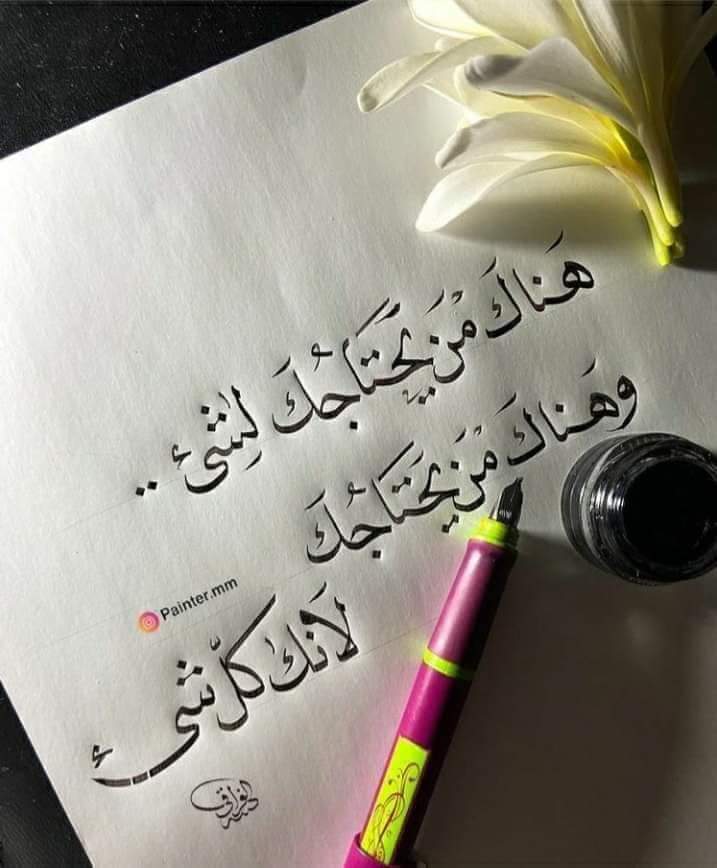 هَناكَ مَنْ يَحتَاجُكَ لِشَئ ..
وهَناكَ مَنْ يَحتَاجُكَ
لأنكَ كلّ شئ
Painter.mm